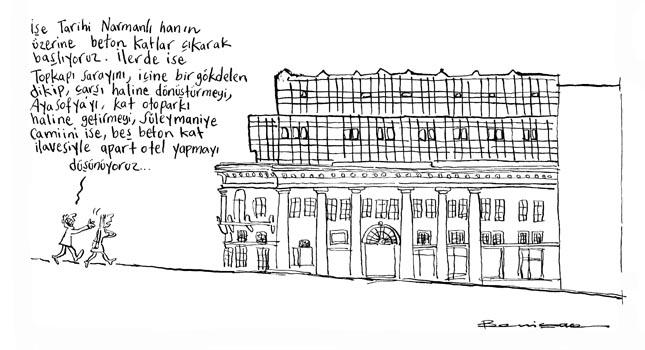 İşe Tarihi Narmanlı hanın
üzerine beton katlar çıkarak
başlıyoruz. İlerde ise
Topkapı sarayını, içine bir gökdelen
dikip, çarşı haline dönüştürmeyi,
Ayasofya'yı, kat otoparkı
haline getirmeyi, Süleymaniye
Camiini ise, beş beton kat
ilavesiyle apart otel yapmayı
düşünüyoruz...